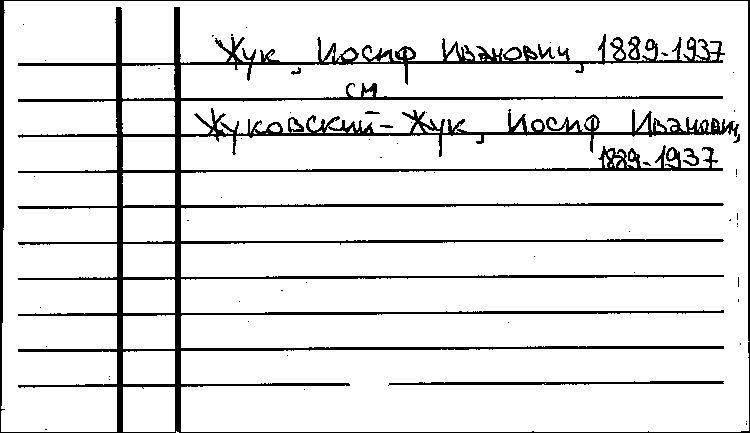 Жук, Иосиф Иванович, 1889-1937
см.
Жуковский-Жук, Иосиф Иванович,
1889-1937